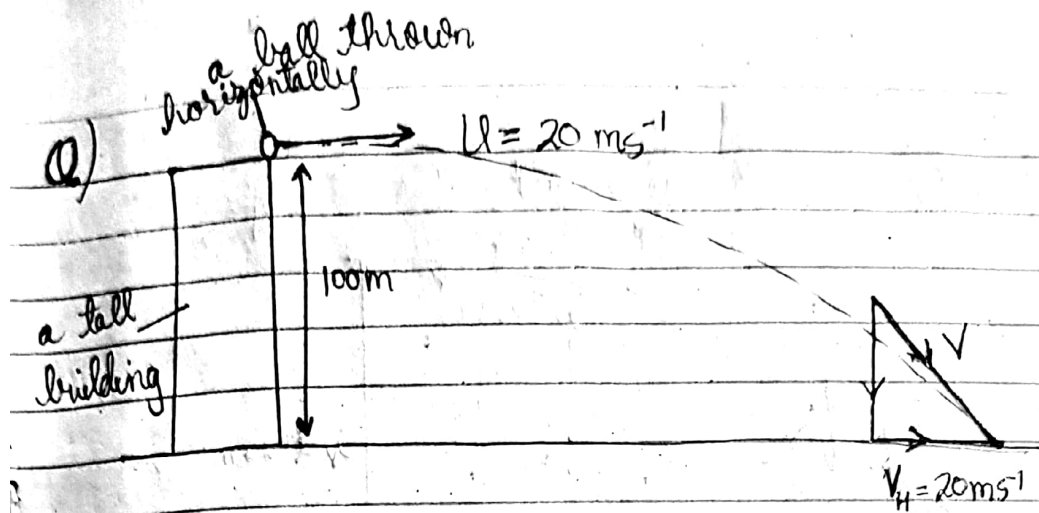 a ball thrown
horizontally
Q)
U = 20 ms⁻¹
100m
a tall
building
V
V_H = 20ms⁻¹